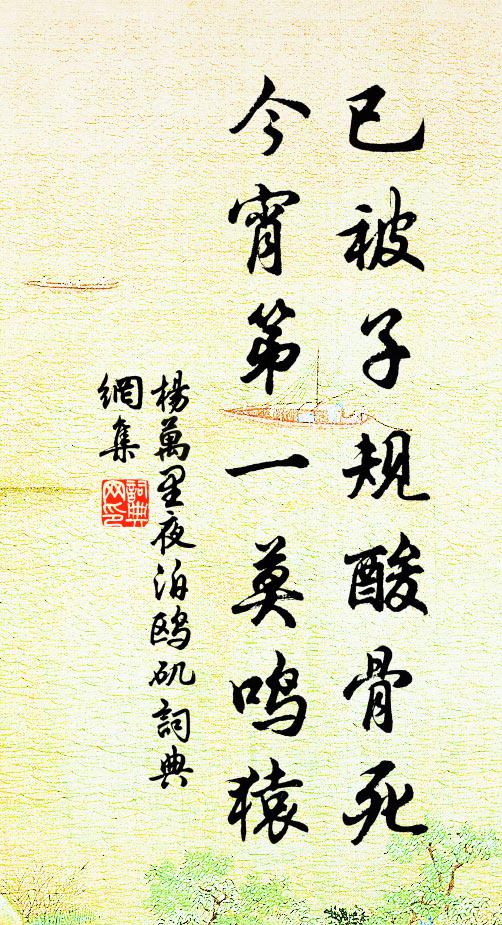 已被子规酸骨死
今宵第一莫鸣猿
楊萬里夜泊鸥矶詞典
網集
詞典网印